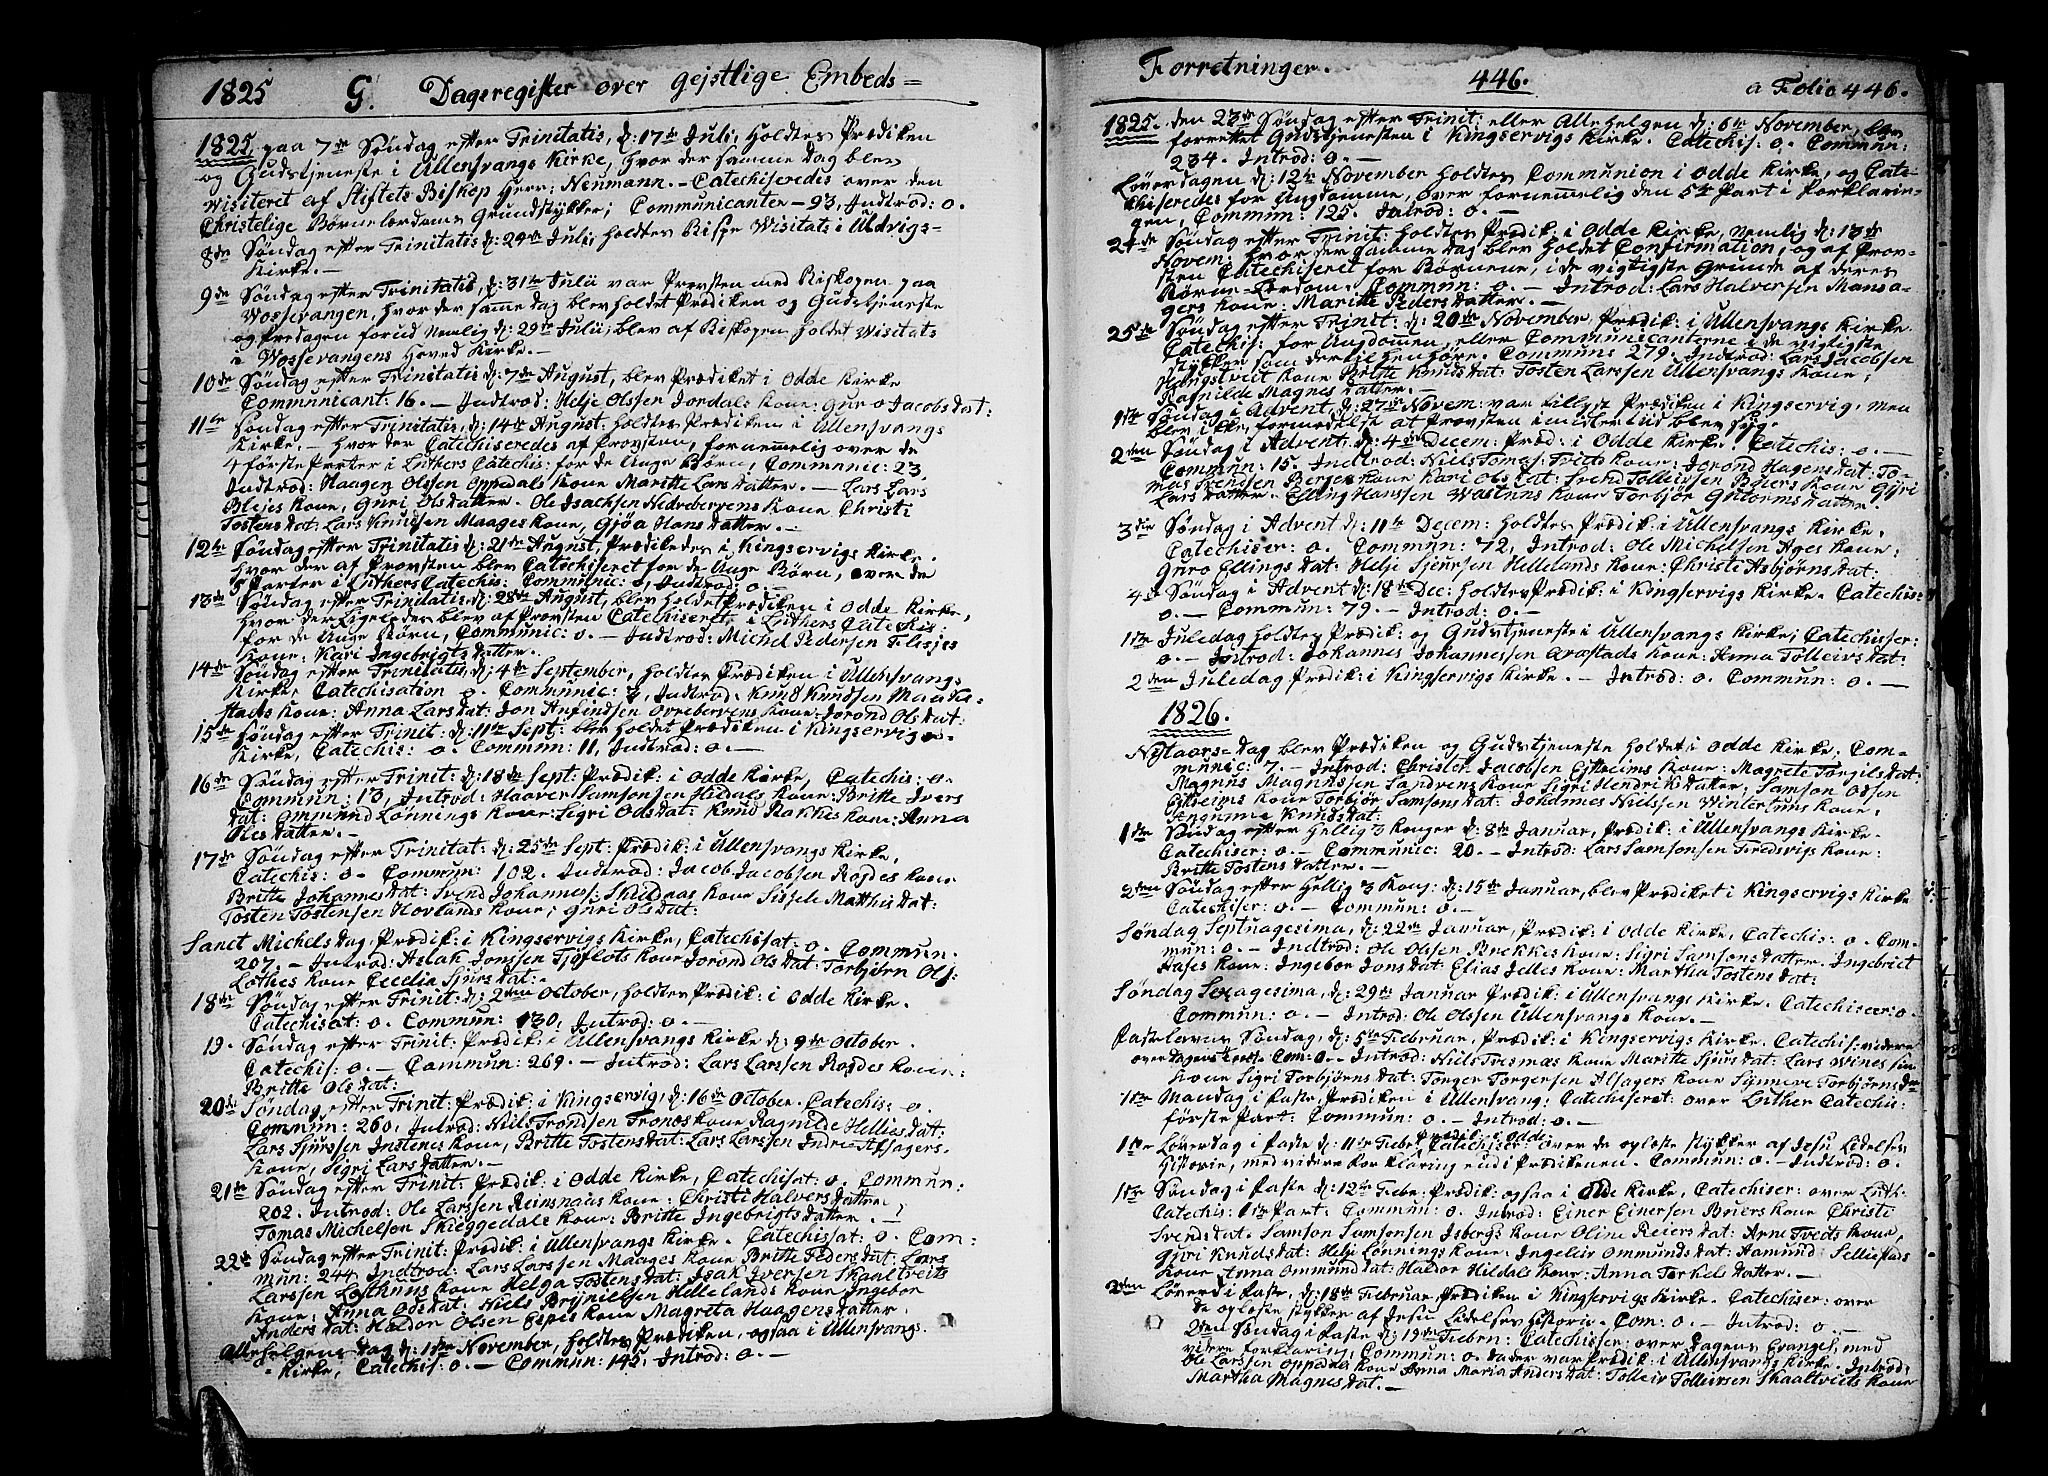 1825 G. Dagsregister over gejstlige Embeds=
1825. paa 7de Søndag efter Trinitatis, d: 17de Juli; holdtes Prædiken
og Gudstjeneste i Ullensvangs Kirke, hvor der samme Dag blev
Visiteret af Stiftets Biskop Herr: Neumann. - Catechiseredes over den
Christelige Børnelærdoms Grundstykker; Communicanter - 93, Indtrod: 0.
8de Søndag efter Trinitatis d: 24de Juli; holdtes Bispe Visitats i Uldvigs-
Kirke. -
9de Søndag efter Trinitatis, d: 31te Julii var Provsten med Biskopen paa
Wossevangen, hvor der samme dag blev holdet Prædiken og Gudstjeneste
og Predagen forud Nemlig d: 29de Julii; blev af Biskopen holdet Visitats
i Wossevangens Hoved Kirke. -
10de Søndag efter Trinitatis d: 7de August, blev Prædiket i Odde Kirke
Communicant: 16. - Indtrod: Helje Olssen Jordals Kone: Guro Jacobsdat:
11te Søndag efter Trinitatis, d: 14de August: holdtes Prædiken i Ullensvangs
Kirke. - hvor der Catechiseredes af Provsten, fornemmelig over de
4 første Parter i Luthers Catechis: for de Unge Børn, Communic: 23,
Indtrod: Haagen Olssen Oppedals Kone Maritte Larsdatter. - Lars Lars
Blejes Kone, Guri Olsdatter. Ole Isachsen Nidrebervens Kone Christi
Tostensdat: Lars Knudsen Maages Kone, Gjøa Hansdatter. -
12te Søndag efter Trinitatis d: 21de August, Prædikedes i Kingservigs Kirke,
hvor der af Provsten blev Catechiseret for de Unge Børn, over de
5 Parter i Luthers Catechis: Communic: 0, Indtrod: 0. -
13de Søndag efter Trinitatis, d: 28de August, blev holdet Prædiken i Odde Kirke,
hvor der Ligeledes blev af Provsten Catechiseret, i Luthers Catechis:
for de Unge Børn, Communic: 0. - Indtrod: Michel Pedersen Flesjes
Kone: Kari Ingebrigtsdatter.
14de Søndag efter Trinitatis, d: 4de September, holdtes Prædiken i Ullensvangs
Kirke, Catechisation 0. Communic: 7, Indtrod: Knud Knudsen Maake-
stads Kone: Anna Larsdat: Jon Anfindsen Ovrebervens Kone: Jorond Olsdat:
15de Søndag efter Trinit: d: 11te Sept: blev holdet Prædiken i Kingservigs-
Kirke, Catechis: 0. Commun: 11, Indtrod: 0. -
16de Søndag efter Trinit: d: 18de Sept: Prædik: i Odde Kirke, Catechis: 0.
Commun: 13, Introd: Haaver Samsonsen Hildals Kone: Britte Ivers
dat: Ommund Lønnings Kone: Sigri Odsdat: Knud Bakkes Kone: Anna
Olesdatter. -
17de Søndag efter Trinitat: d: 25de Sept: Prædik: i Ullensvangs Kirke,
Catechis: 0. Commun: 102. Indtrod: Jacob Jacobsen Rogdes Kone
Britte Johannesdat: Svend Johanness: Skildaas Kone Sissele Matthisdat:
Tosten Tostensen Hovlands Kone; Guri Olsdat:
Sanct Michelsdag, Prædik: i Kingservigs Kirke, Catechisat: 0. Commun.
207. - Introd: Aslak Jonssen Tjoflots Kone Jorond Olsdat: Torbjørn Ols:
Lothes Kone Cecelia Sjursdat:
18de Søndag efter Trinit: d: 2den October, holdtes Prædik: i Odde Kirke.
Catechisat: 0. Commun: 130, Introd: 0. -
19. Søndag efter Trinit: Prædik: i Ullensvangs Kirke d: 9de October.
Catechis: 0. - Commun: 269. - Introd: Lars Larssen Rogdes Kone:
Britte Olsdat:
20de Søndag efter Trinit: Prædik: i Kingservig, d: 16de October. Catechis: 0.
Commun: 260, Introd: Niels Trondsen Tronds Kone Ragnilde Helliesdat:
Lars Sjurssen Instenes Kone, Britte Tostensdat: Lars Larssen Indre Alsagers.
Kone, Sigri Larsdatter. -
21de Søndag efter Trinit: Prædik: i Odde Kirke, Catechisat: 0. Commun:
202. Introd: Ole Larssen Reinsnaas Kone: Christi Halversdatter
Tomas Michelsen Skieggedals Kone: Britte Ingebrigtsdatter. -
22de Søndag efter Trinit: Prædik: i Ullensvangs Kirke. Catechissat: 0. Com:
mun: 244, Indtrod: Lars Larssen Maages Kone Britte Pedersdat: Lars
Larssen Lothuus Kone Helga Tostensdat: Isak Iversen Skaaltveits
Kone: Anna Odsdat: Niels Brynielssen Hellelands Kone Ingebor
Andersdat: Haldor Olsen Espes Kone Magreta Haagensdatter.
Allehelgens dag d: 1ste November, holdtes Prædiken, ogsaa i Ullensvangs-
Kirke, Catechis: 0. - Commun: 145, Introd: 0. -
Forretninger. 446. a Folio 446.
1825. den 23de Søndag efter Trinit: eller Alle Helgen d: 6te November, blev
forrettet Gudstjenesten i Kingservigs Kirke. Catechis: 0. Commun:
234. Introd: 0. -
Løverdagen d: 12te November holdtes Communion i Odde Kirke, og Cate-
chiseredes for Ungdomme, over fornemmelig den 5te Part i Forklarin-
gen, Commun: 125. Introd: 0. -
24de Søndag efter Trinit: holdtes Prædik: i Odde Kirke, Nemlig d: 13de
Novem: hvor der samme Dag blev holdet Confirmation, og af Prov-
sten Catechiseret for Børnene, i de vigtigste Grunde af deres
Børne-Lærdom. Commun: 0. - Introd: Lars Halversen Mansa-
gers Kone: Maritte Pedersdatter. -
25de Søndag efter Trinit: d: 20de November, Prædik: i Ullensvangs Kirke
Catechis: for Ungdommen, eller Communicanterne i de vigtigste
stykker som dertil henhøre. Communs 279. Indtrod: Lars Jacobsen
Hangstveit Kone Britte Knudsdat: Tosten Larssen Ullensvangs Kone;
Ragnilde Magnesdatter. -
1ste Søndag i Advent, d: 27de Novem: var tillyst Prædiken i Kingservig, men
blev ikke, formedelst at Provsten imidlertid blev syg.
2den Søndag i Advent, d: 4de Decem: Præd: i Odde Kirke. Catechis: 0. -
Commun: 15. Indtrod: Niels Tomas: Tveits Kone: Jorond Hagensdat: To-
mas Svendsen Berges Kone Kari Olsdat: Svend Tolleivssen Buers Kone Guri
Larsdatter. Elling Hanssen Wastuns Kone Torbjør Gutormsdatter.
3die Søndag i Advent d: 11te Decem: holdtes Prædik: i Ullensvangs Kirke.
Catechiser: 0. Commun: 72, Introd: Ole Michelsen Ages Kone:
Guro Ellingsdat: Helje Sjursen Hellelands Kone: Christe Asbjørnsdat:
4de Søndag i Advent d: 18de Dec: holdtes Prædik: i Kingservigs Kirke. Catechis:
0. - Commun: 79. - Introd: 0. -
1ste Juledag holdtes Prædik: og Gudstjeneste i Ullensvangs Kirke; Catechisser:
0. - Introd: Johannes Johannessen Arastads Kone: Anna Tolleivsdat:
2den Juledag Prædik: i Kingservigs Kirke. - Introd: 0. Commun: 0. -
1826.
Nytaars-Dag blev Prædiken og Gudstjeneste holdet i Odde Kirke. Com-
munic: 7. - Introd: Christen Jacobsen Eittheims Kone: Magrete Torgilsdat:
Magnus Magnussen Sandvens Kone Sigri Hendriksdatter; Samson Odsen
Eittheims Kone Torbjør Samsonsdat: Johannes Nielssen Wintertuns Kone:
Angunne Knudsdat:
1ste Søndag efter Hellig 3 Konger d: 8de Januar, Prædik: i Ullensvangs Kirke.
Catechiser: 0. - Communic: 20. - Introd: Lars Samsonsen Tredevigs Kone:
Britte Tostensdatter. -
2den Søndag efter Hellig 3 Kong: d: 15de Januar, blev Prædiket i Kingservigs Kirke
Catechiser: 0. - Commun: 0. -
Søndag Septuagesima, d: 22de Januar, Prædik: i Odde Kirke, Catechis: 0. Com-
mun: 0. - Indtrod: Ole Olsen Brekkes Kone: Sigri Samsonsdatter. Ingebriet
Aases Kone: Ingebor Jonsdat: Elias Jelles Kone: Martha Tostensdat:
Søndag Sexagesima, d: 29de Januar Prædik: i Ullensvangs Kirke. Catechiser: 0.
Commun: 0. - Introd: Ole Olssen Ullensvangs Kone. -
Fastelavns Søndag, d: 5te Februar, Prædik: i Kingservigs Kirke. Catechis: videre
over Dagens Com: 0. - Introd: Niels Tresnæs Kone Maritte Sjursdat: Lars Wines sin
Kone Sigri Torbjørnsdat: Torger Torgersen Alsagers Kone Synneve Torbjørnsdtr
1ste Mandag i Faste, Prædiken i Ullensvang; Catechiseret over Luther Catechis:
første Part: Commun: 0. - Introd: 0. -
Prædik: i Odde
1ste Løverdag i Faste d: 11te Febr: Catechiser: over de oplæste stykker af Jesu Lidelses
Historie, med videre Forklaring end i Prædikenen. Commun: 0. - Indtrod: 0.
1ste Søndag i Faste d: 12te Febr: Prædik: ogsaa i Odde Kirke, Catechiser: over Luth:
Catechis: 1ste Part. Commun: 0. Introd: Einer Einersen Buers Kone Christi
Svendsdat. Samson Samsonsen Isbergs Kone Oline Reiersdat: Arne Tveits Kone,
Guri Knudsdat: Helje Lønnings Kone: Ingeleiv Ommundsdat: Aamund Selliestads
Kone Anna Ommundsdat: Haldor Hildals Kone: Anna Torkelsdatter. -
2den Løverd: i Faste, d: 18de Februar Prædiken i Kingservigs Kirke. Catechiser: over
de oplæste stykker af Jesu Lidelses Historie. - Com: 0. - Introd: 0. -
2den Søndag i Faste d: 19de Febru: Catechisser: over Dagens Evangel; med
videre forklaring; Commun: 0. da der var Prædik: i Ullensvangs Kirke. Introd:
Ole Larssen Oppedals Kone Anna Maria Andersdat: Tolleiv Tolleivsen Skaaltveits Kone
Martha Magnesdat. -